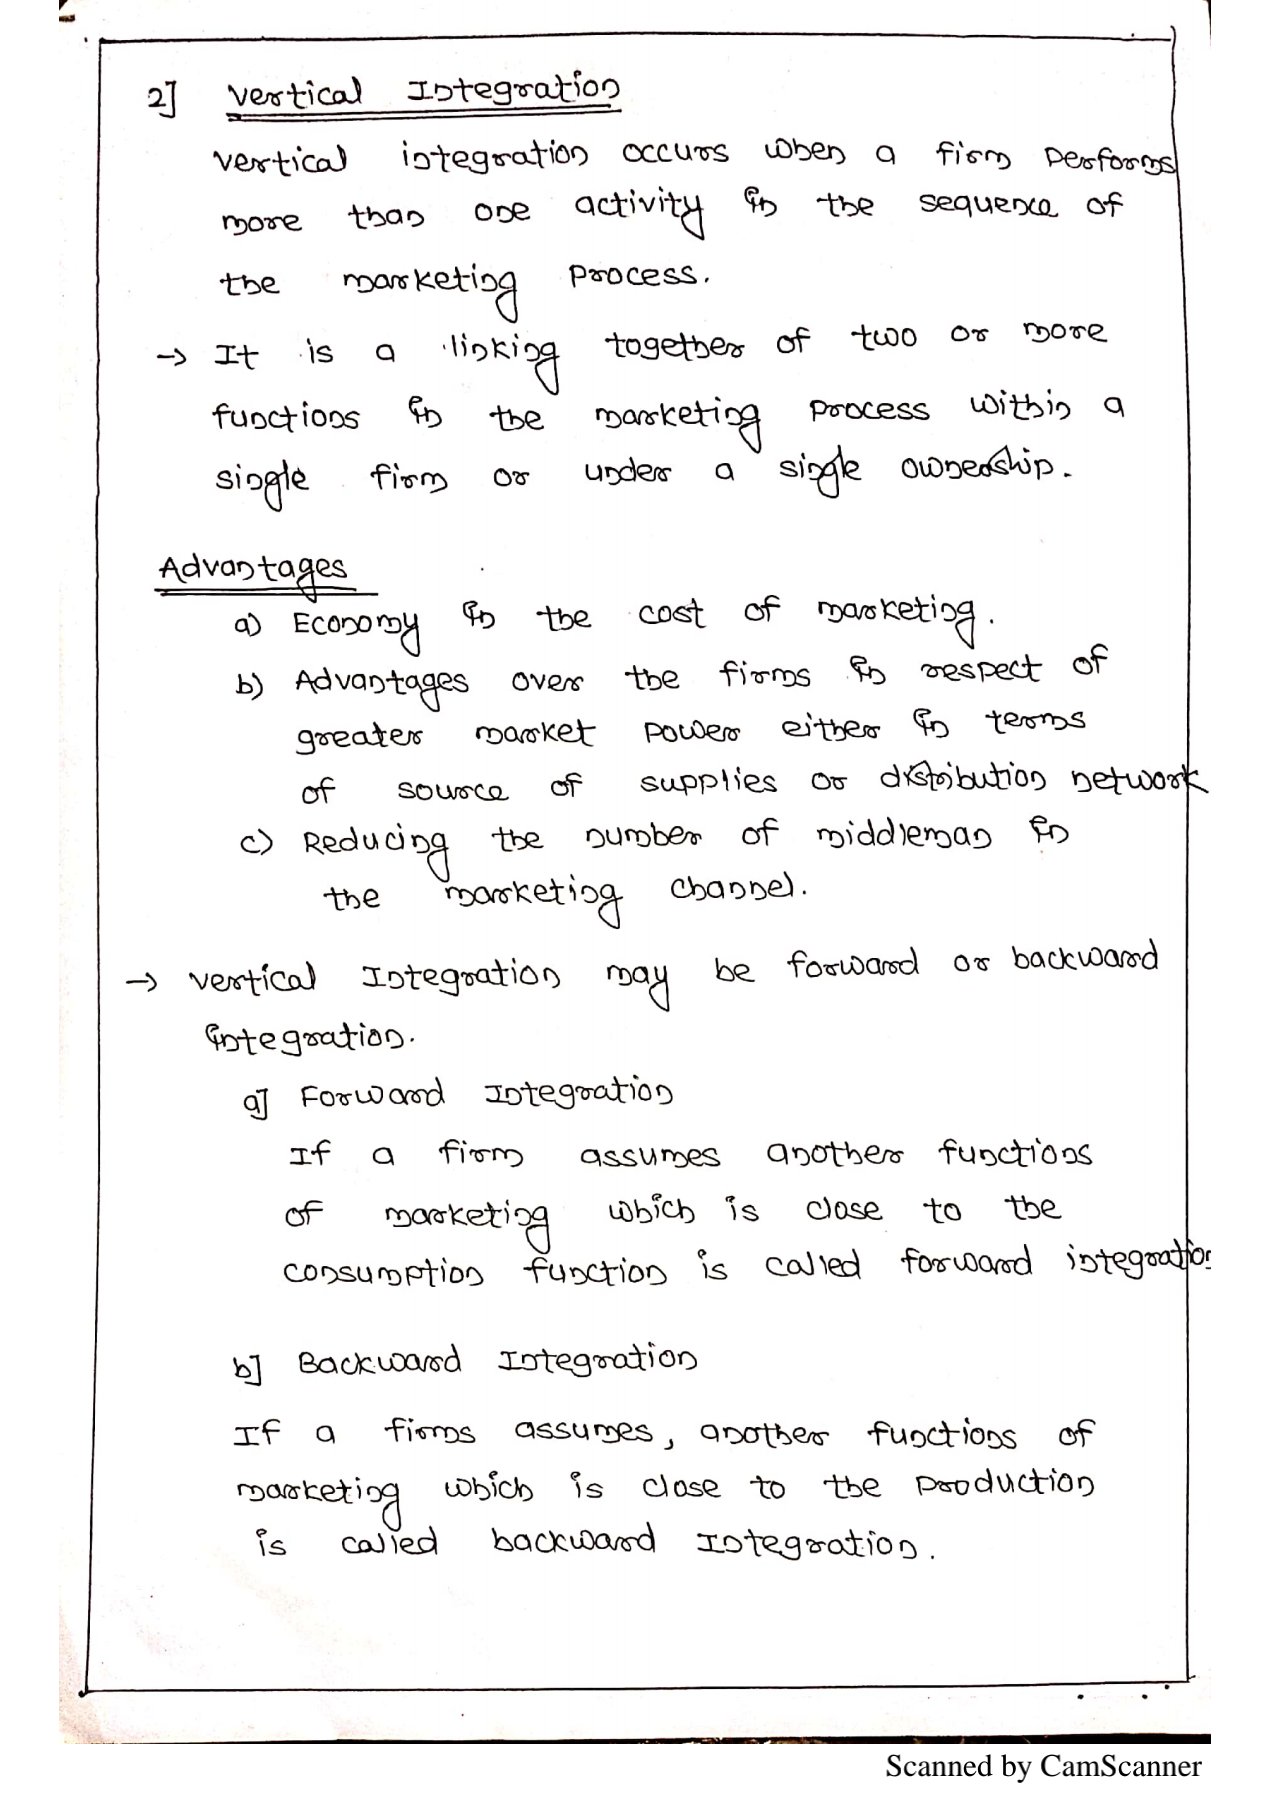 2] Vertical Integration
Vertical integration occurs when a firm performs
more than one activity in the sequence of
the marketing process.
→ It is a linking together of two or more
functions in the marketing process within a
single firm or under a single ownership.
Advantages
a) Economy in the cost of marketing.
b) Advantages over the firms in respect of
greater market power either in terms
of source of supplies or distribution network
c) Reducing the number of middleman in
the marketing channel.
→ Vertical Integration may be forward or backward
integration.
a] Forward Integration
If a firm assumes another functions
of marketing which is close to the
consumption function is called forward integration
b] Backward Integration
If a firms assumes, another functions of
marketing which is close to the production
is called backward Integration.
Scanned by CamScanner